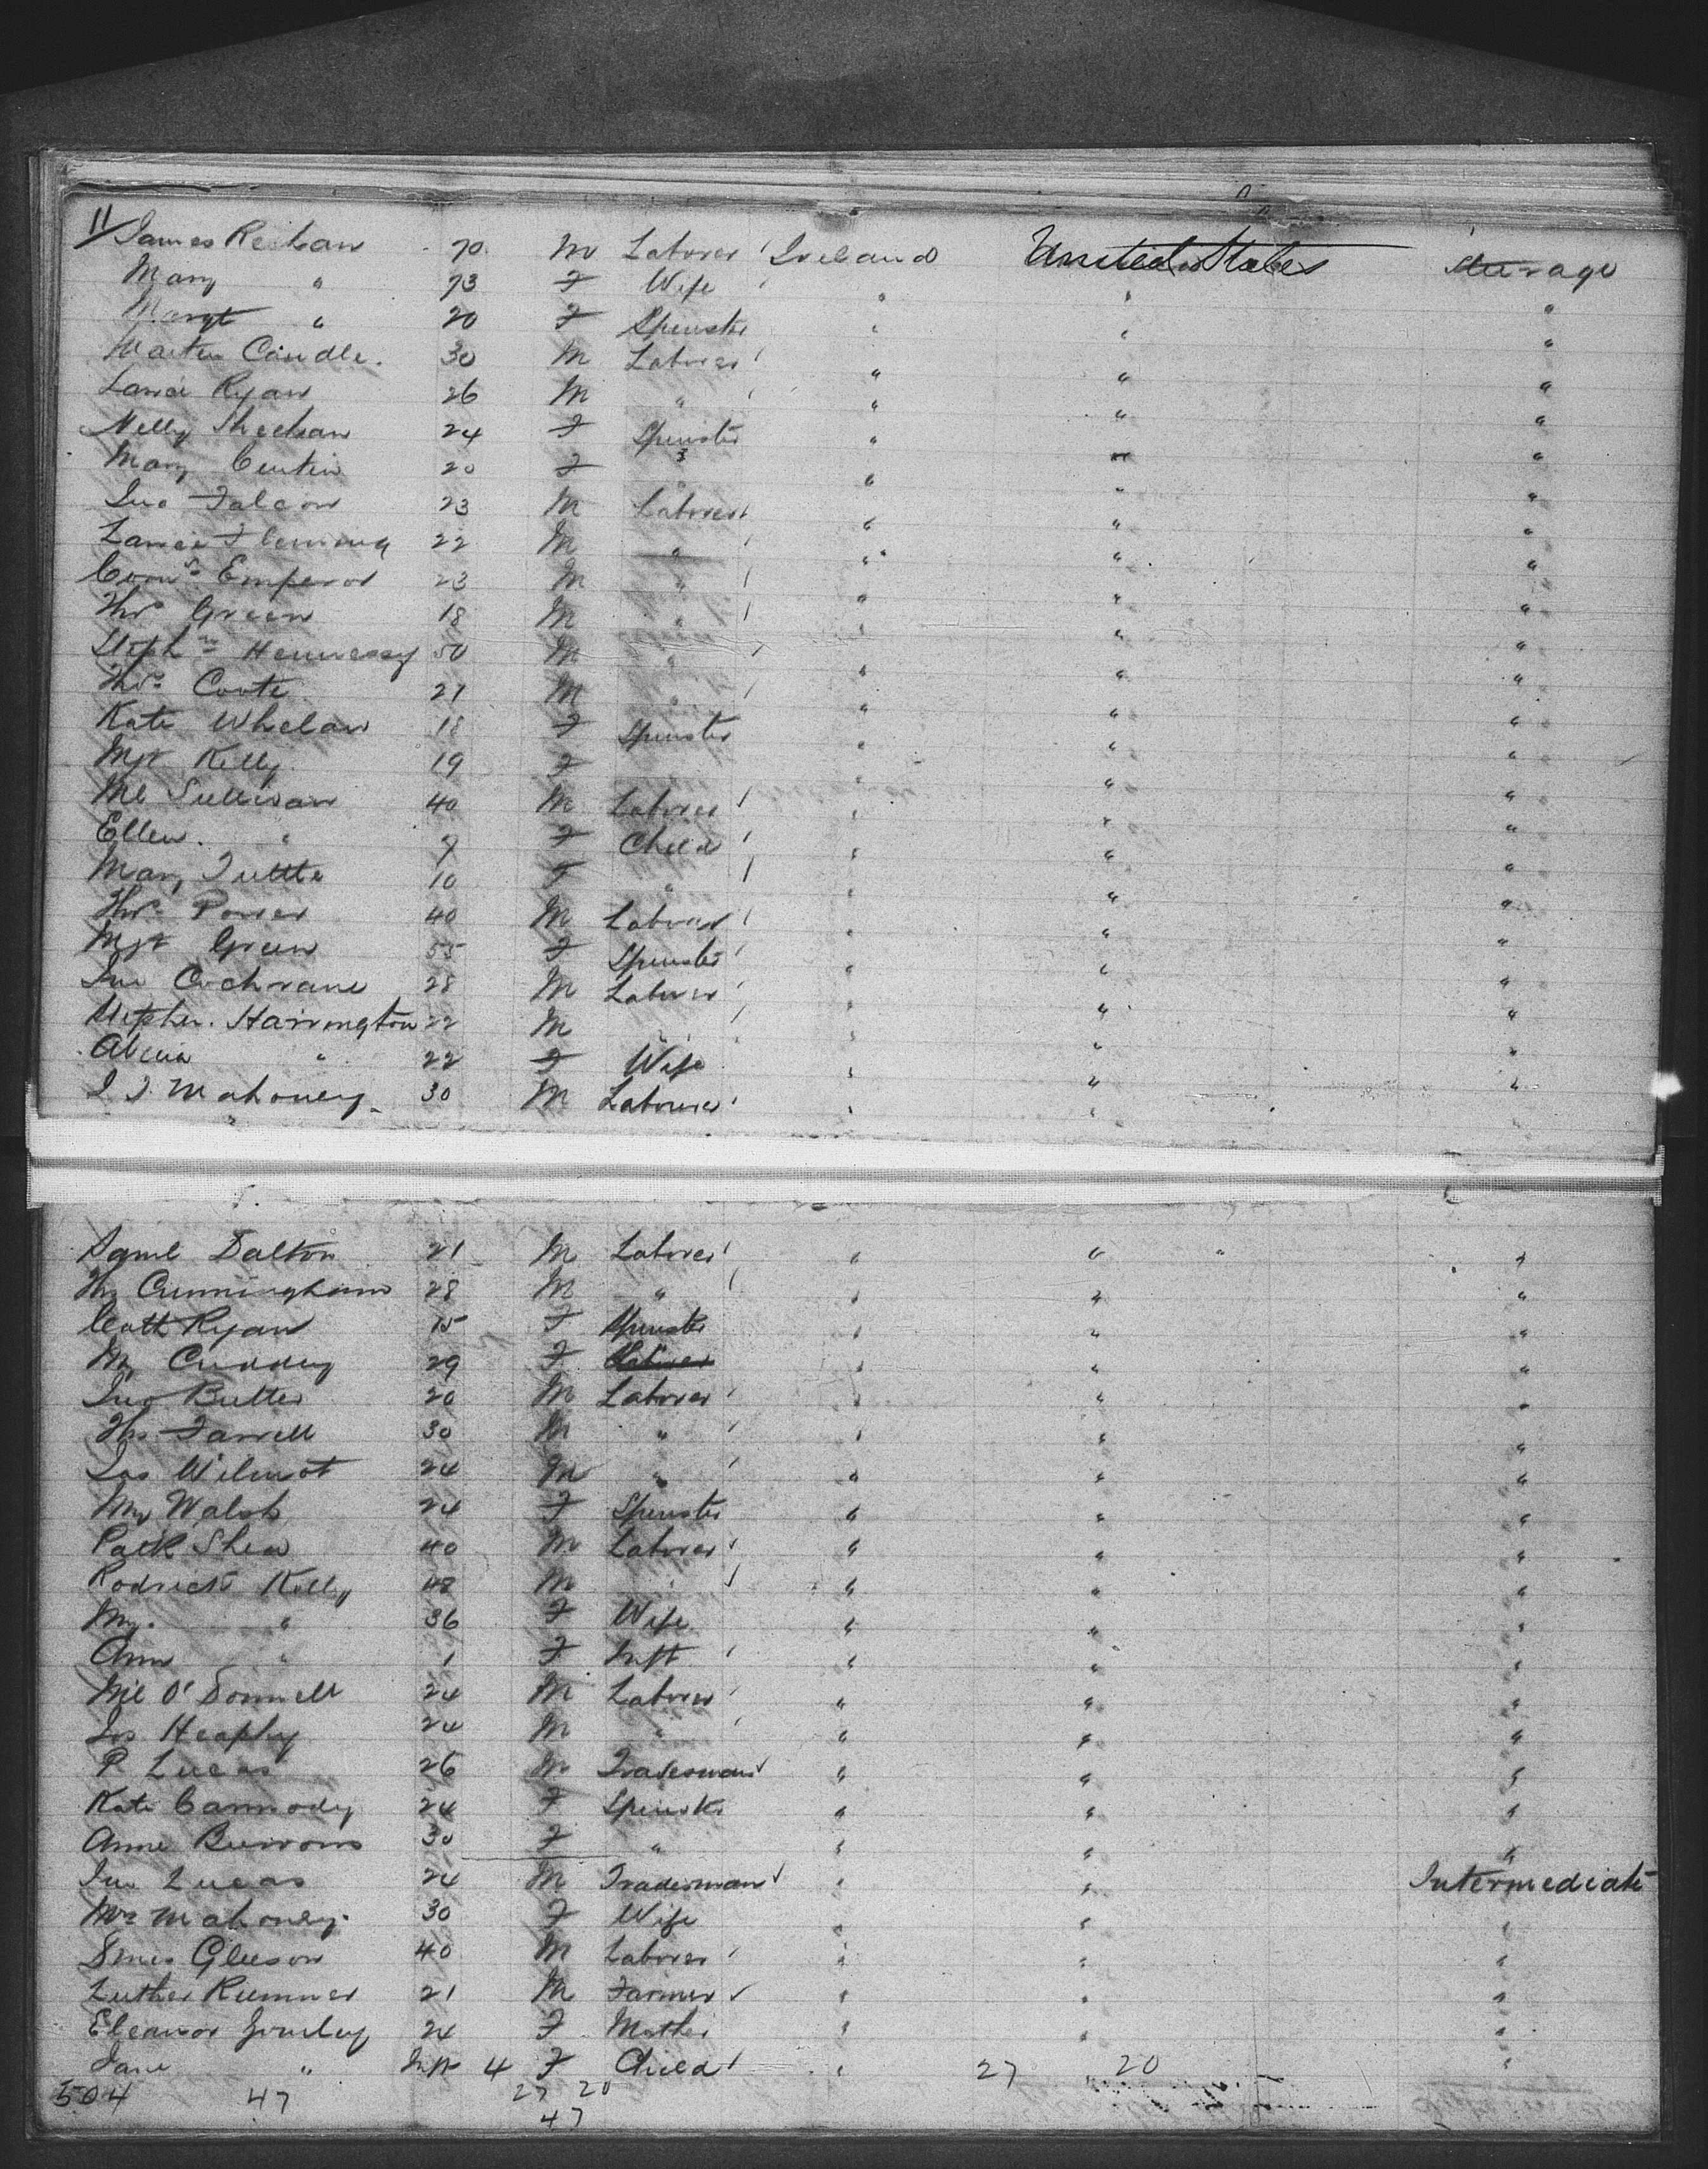 11 James Reihan 70 M Laborer Ireland United States Steerage
Mary " 73 F Wife " " "
Margt " 20 F Spinster " " "
Marten Caudle. 30 M Laborer " " "
Lance Ryan 26 M " " " "
Nelly Sheehan 24 F Spinster " " "
Mary Curtin 20 F " " " "
Jno Falcon 23 M Laborer " " "
Lance Fleming 22 M " " " "
Corns Emperor 23 M " " " "
Thos Green 18 M " " " "
Stephn Hennessy 50 M " " " "
Thos Coote 21 M " " " "
Kate Whelan 18 F Spinster " " "
Mgt Kelly 19 F " " "
Ml Sullivan 40 M Laborer " " "
Ellen " 9 F Child " " "
Mary Tuttle 10 F " " " "
Thos Power 40 M Laborer " " "
Mgt Green 55 F Spinster " " "
Jno Cochrane 28 M Laborer " " "
Stephen Harrington 22 M " " "
" 22 F Wife " " "
J J Mahoney 30 M Laborer " " "
Saml Dalton 21 M Laborer " " " "
Ths Cunningham 28 M " " " "
Cath Ryan 15 F Spinster " " "
My Cuddy 29 F Laborer " " "
Jno Butler 20 M Laborer " " "
Ths Farrell 30 M " " " "
Jas Wilmot 24 M " " " "
My Walsh 24 F Spinster " " "
Patk Shea 40 M Laborer " " "
Rodrick Kelly 48 M " " " "
My " 36 F Wife " " "
Ann " 1 F Inft " " "
Ml O'Donnell 24 M Laborer " " "
Jas Heaphy 24 M " " " "
P Lucas 26 M Tradesman " " "
Kate Carmody 24 F Spinster " " "
Anne Burrows 30 F " " " "
Jno Lucas 24 M Tradesman " " Intermediate
Mrs Mahoney 30 F Wife " " "
Gleeson 40 M Laborer " " "
Luther Rumner 21 M Farmer " " "
Eleanor 24 F Mother " " "
Jane " Inft 4 F Child " 27 20 "
504 47 27 20
47